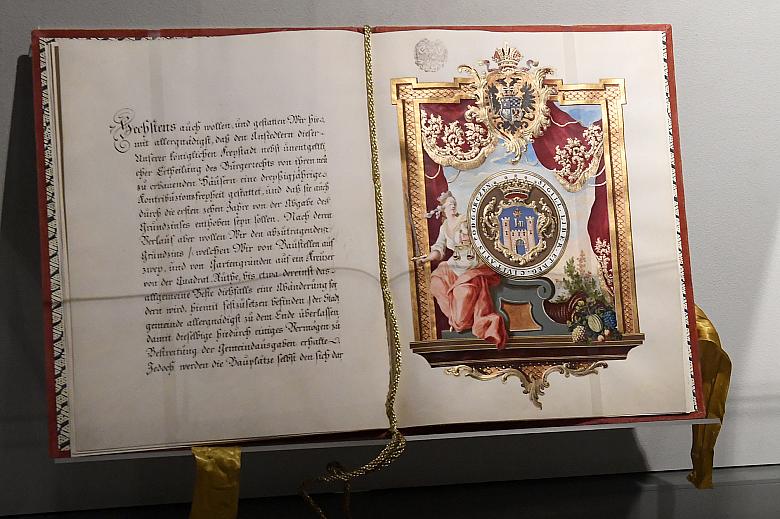 Sechstens auch wollen, und gestatten Wir hie-
mit allergnädigst, daß den Ansiedlern dieser
Unserer königlichen Freystadt nebst unentgeltli
cher Ertheilung des Bürgerrechts von ihren neu
zu erbauenden Häusern eine dreyßigjährige
Kontributionsfreyheit gestattet, und daß sie auch
durch die ersten zehen Jahr von der Abgabe des
Grundzinses enthoben seyn sollen. Nach deren
Verlauf aber wollen Wir den abzutragenden
Grundzins / welchen Wir von Baustellen auf
zwey, und von Gartengründen auf ein Kreuzer
von der Quadrat Ruthe, bis etwa dereinst das
allgemeine Beste diesfalls eine Abänderung for
dern wird, hiemit festzusetzen befinden / der Stadt
gemeinde allergnädigst zu dem Ende überlassen
damit dieselbige hiedurch einiges Vermögen zu
Bestreitung der Gemeindausgaben erhalte.
Jedoch werden die Bauplätze selbst den sich dar